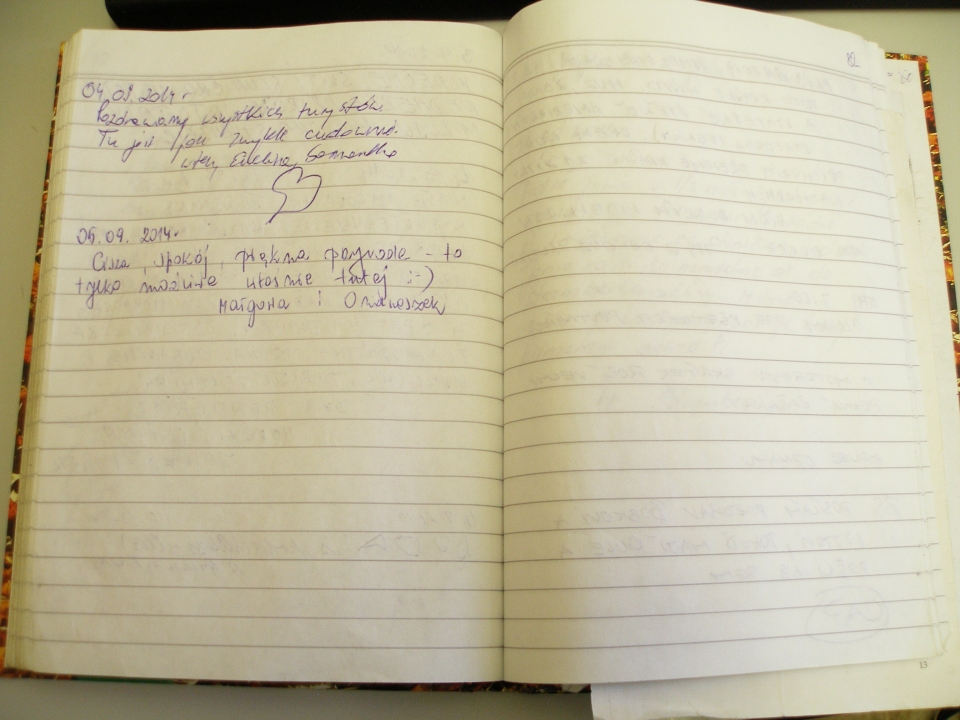 04.09.2014r
Pozdrawiamy wszystkich turystów.
Tu jest jak zwykle cudownie.
Ewelina, Samantha
05.09.2014r.
Cisza, spokój, piękna przyroda - to
tylko możliwe właśnie tutaj :-)
Małgosia i
82
13